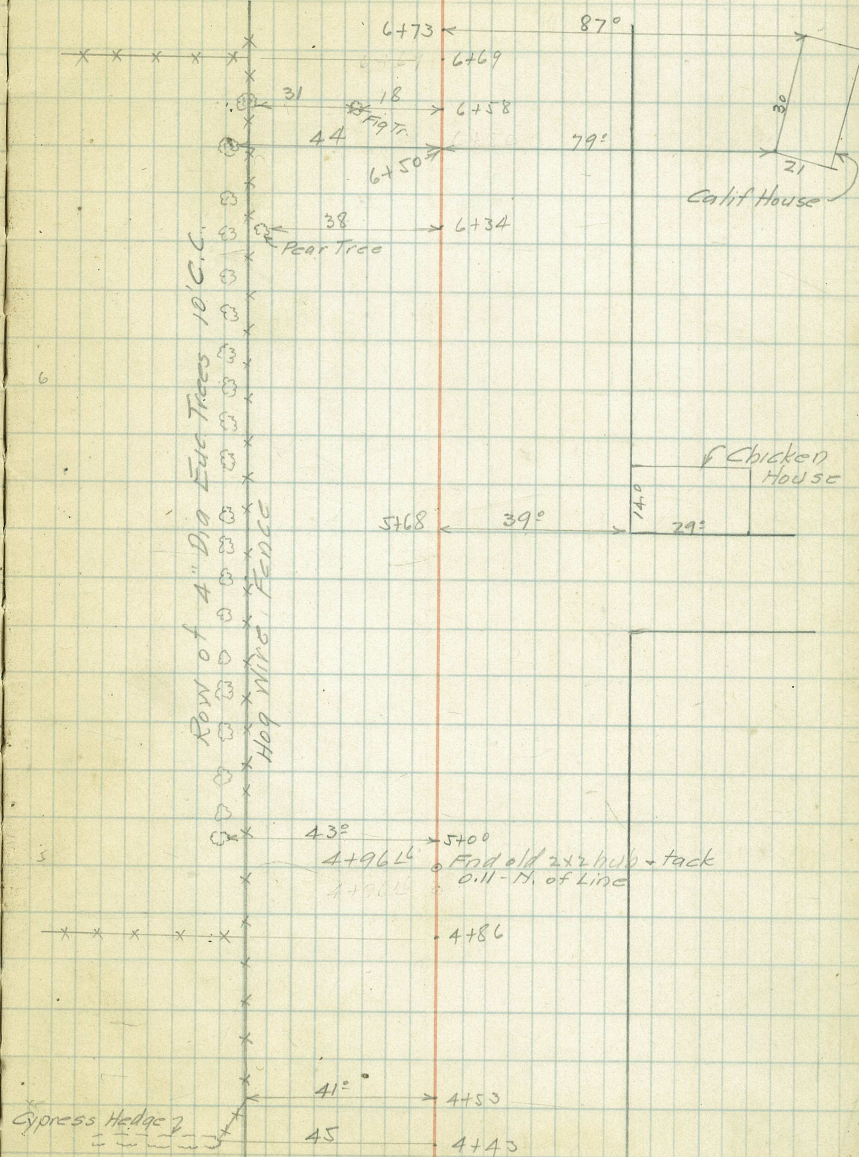 6+73
87⁰
6+69
31
18
6+58
Fig Tr.
30
44
6+50
79⁰
21
Calif House
38
6+34
Pear Tree
Row of 4" Dia Euc Trees 10' C.C.
Hog Wire Fence
6
Chicken
House
14.0
5+68
39⁰
29⁰
43⁰
5+00
4+96
Fnd old 2x2 hub + tack
0.11 - N. of Line
5
4+86
41⁰
4+53
Cypress Hedge
45
4+43